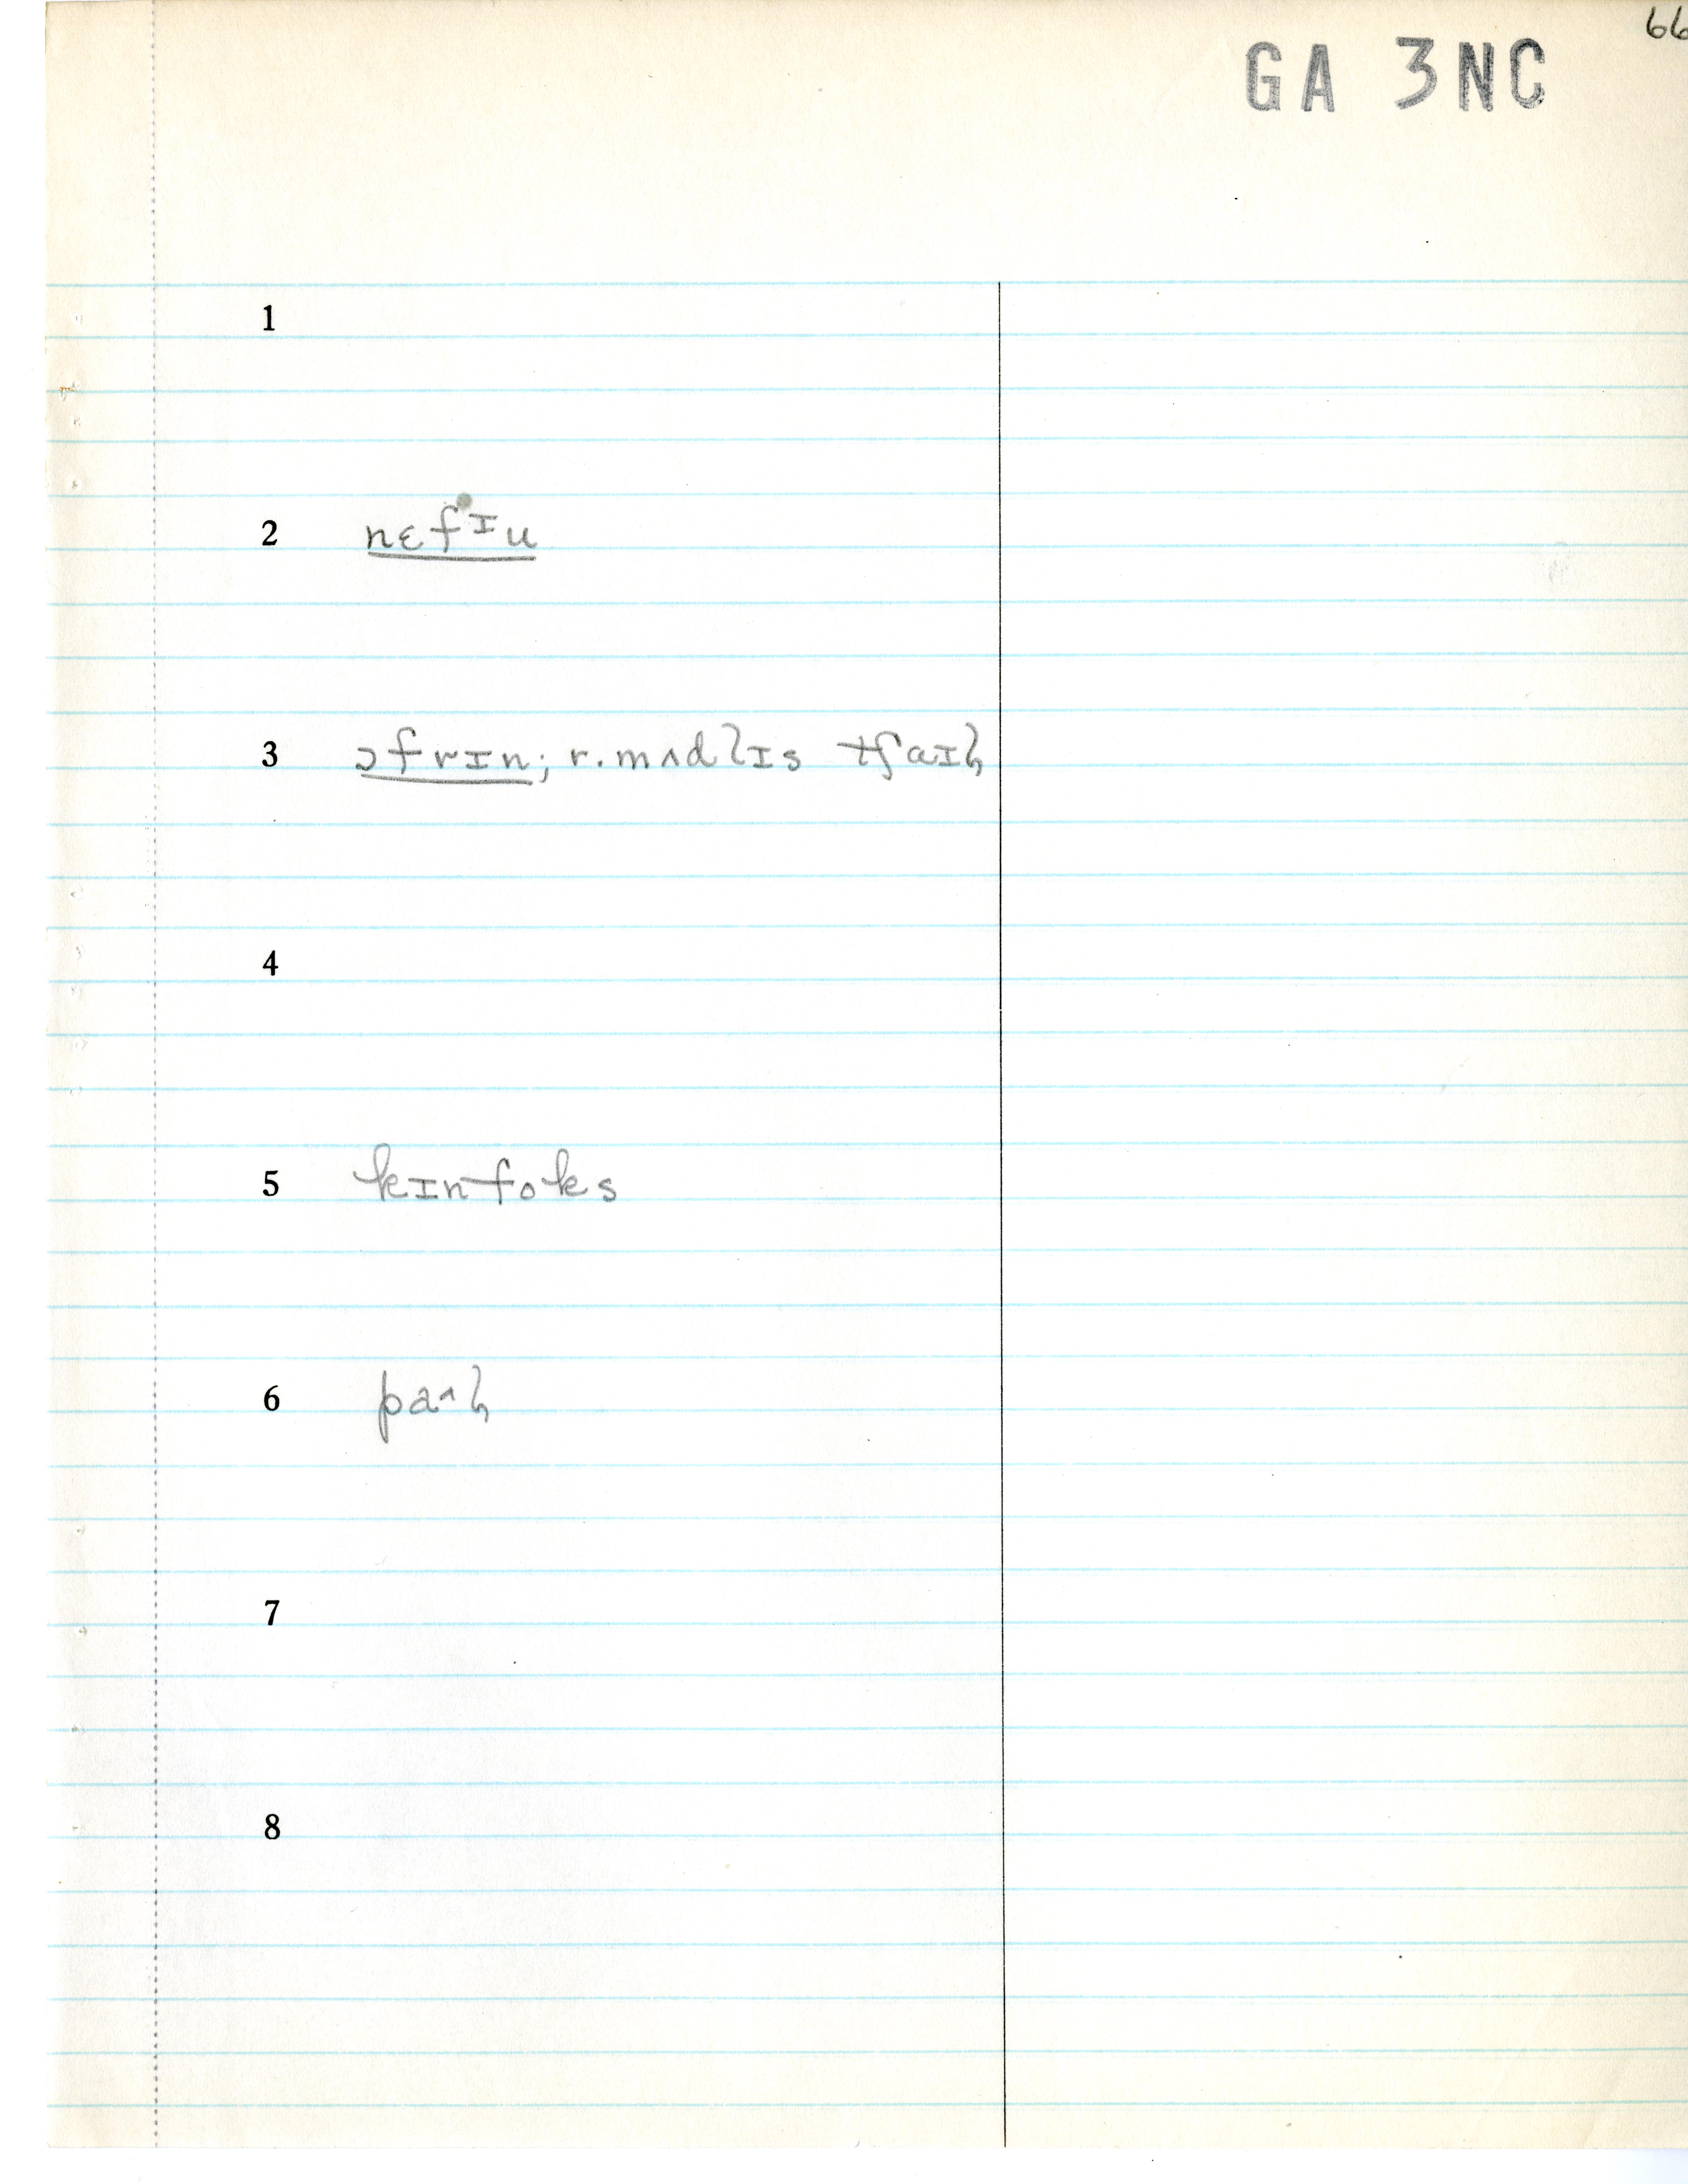 66
GA 3NC
1
2 nɛfᶦu
3 ɔfrɪn; r. mʌdlɪs tʃaɪl
4
5 kɪnfoks
6 paᶺl
7
8